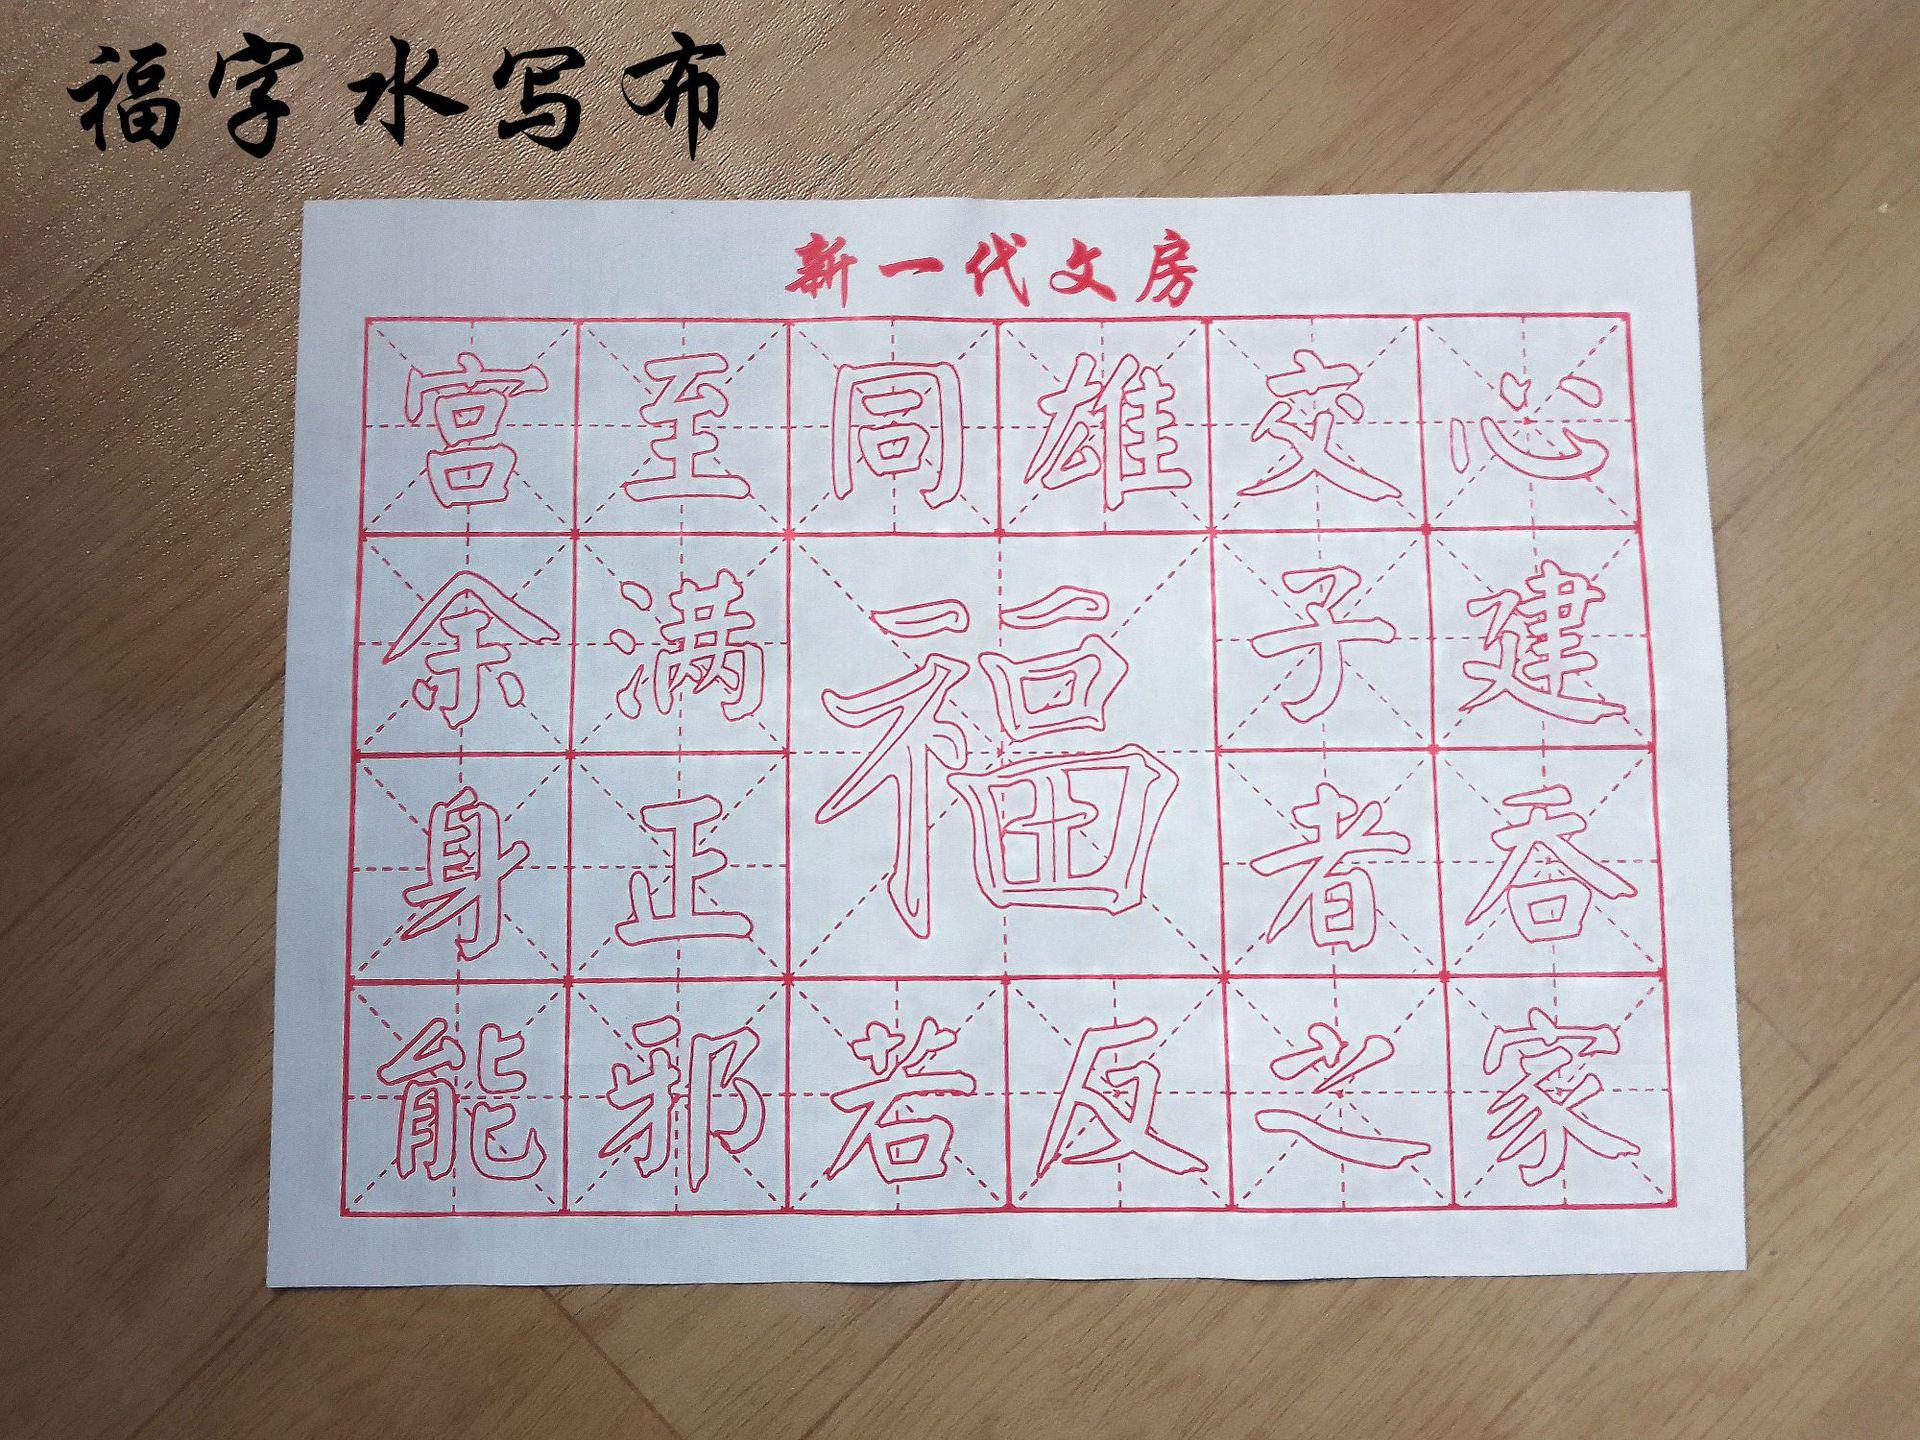 福字水写布
新一代文房
宫至同雄交心
余满福子建
身正者吞
能邪若反之家